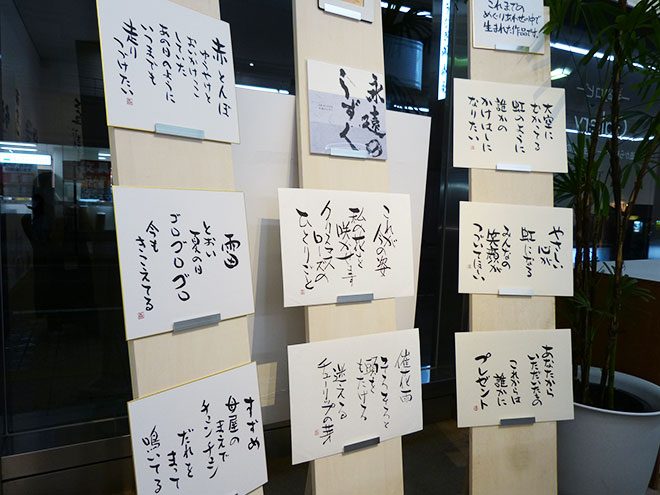 赤とんぼ
ゆうやけと
おいかけっこ
していた
あの日のように
いつまでも
走り
つづけたい
雷
とおい夏の日
ゴロゴロゴロ
今も
きこえてる
すずめ
母屋の
まえで
チュンチュン
だれを
まって
鳴いてる
永遠の
これが
今の姿
クリスマス
ローズの
ひとりごと
催花雨
そろそろと
頭を
もたげる
迎える
チューリップの芽
これまでの、
めぐりあわせの中で
生まれた作品です。
大空に
むかってる
虹のように
誰かの
かけはしに
なりたい
やさしい
心が
虹になる
みんなの
笑顔が
あなたから
いただいたもの
これからは
誰かに
プレゼント